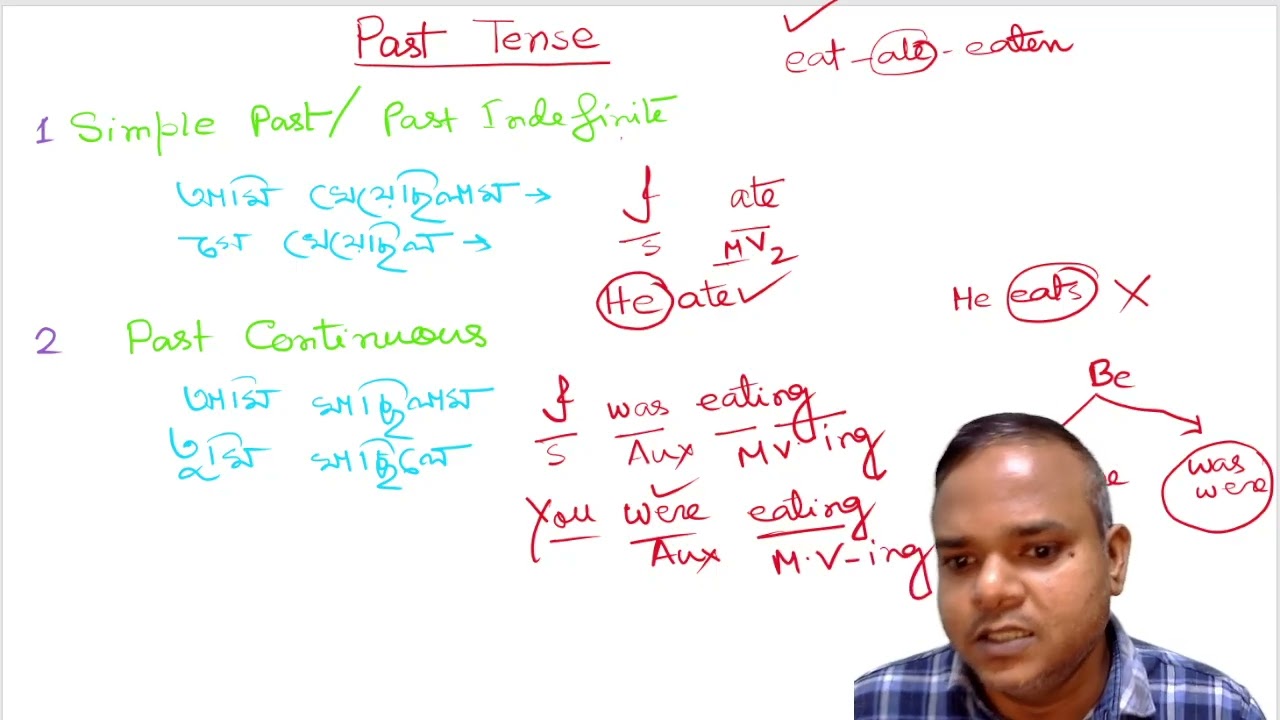 Past Tense
eat - ate - eaten
1 Simple Past/ Past Indefinite
আমি খেয়েছিলাম → I ate
S MV2
সে খেয়েছিল →
He ate ✓ He eats ✗
2 Past Continuous
Be
আমি খাচ্ছিলাম I was eating
S Aux MV ing
তুমি খাচ্ছিলে
was
were
You were eating
Aux M.V-ing